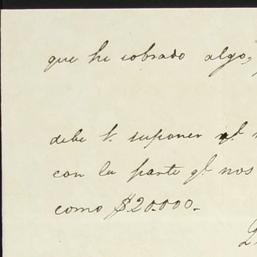 que he cobrado algo,
debe V. suponer ql
con la parte ql nos
como $20.000.-